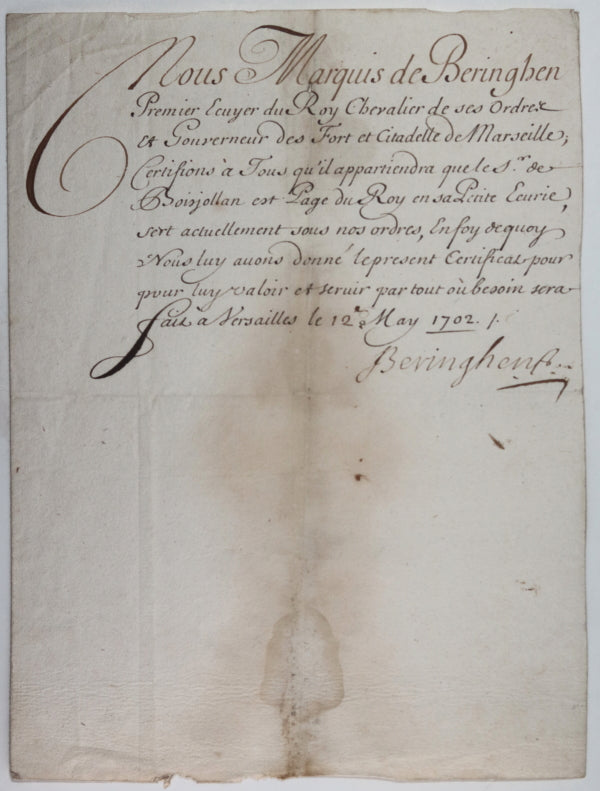 Nous Marquis de Beringhen
Premier Ecuyer du Roy Chevalier de ses Ordres
et Gouverneur des Fort et Citadelle de Marseille;
Certifions à Tous qu'il appartiendra que le S.r de
Boisjollan est Page du Roy en sa Petite Ecurie,
sert actuellement sous nos ordres, En foy de quoy
Nous luy avons donné le present Certificat pour
pour luy valoir et servir par tout où besoin sera
fait à Versailles le 12e May 1702. /.
Beringhen